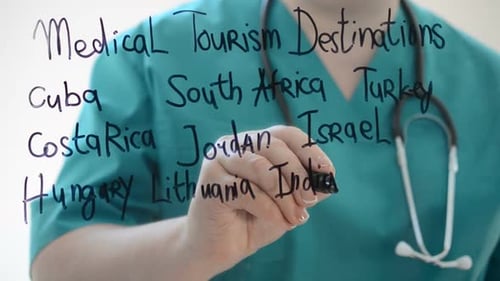 Medical Tourism Destinations
Cuba South Africa Turkey
Costa Rica Jordan Israel
Hungary Lithuania India